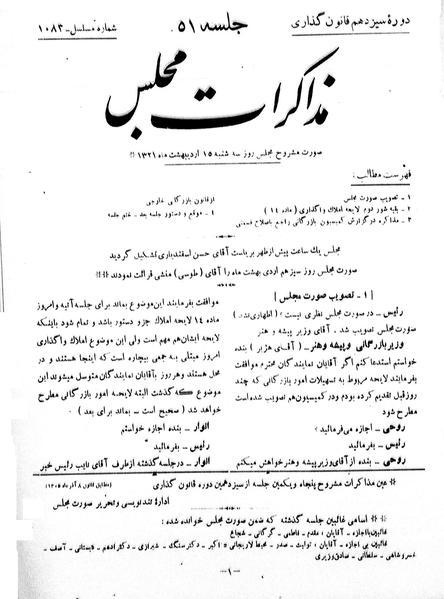 دورهٔ سیزدهم قانون گذاری
جلسه ۵۱
شماره مسلسل - ۱۰۸۳
مذاکرات مجلس
صورت مشروح مجلس روز سه شنبه ۱۵ اردیبهشت ماه ۱۳۲۱
فهرست مطالب:
۱ - تصویب صورت مجلس
۲ - بقیه شور دوم لایحه املاک واگذاری (ماده ۱۴)
۳ - مذاکره در گزارش کمیسیون بازرگانی راجع باصلاح قسمتی
از قانون بازرگانی خارجی
۴ - موقع و دستور جلسه بعد - ختم جلسه
مجلس یک ساعت پیش از ظهر بریاست آقای حسن اسفندیاری تشکیل گردید
صورت مجلس روز سیزدهم اردی بهشت ماه را آقای (طوسی) منشی قرائت نمودند
[ ۱ - تصویب صورت مجلس ]
رئیس - در صورت مجلس نظری نیست؟ (اظهاری نشد)
صورت مجلس تصویب شد. آقای وزیر پیشه و هنر
وزیر بازرگانی و پیشه و هنر - (آقای هژبر) بنده
خواستم استدعا کنم اگر آقایان نمایندگان محترم موافقت
بفرمایند لایحه مربوط به تسهیلات امور بازرگانی که چند
روز قبل تقدیم کرده بودم و در کمیسیون هم تصویب شده است
مطرح شود
روحی - اجازه می فرمائید؟
رئیس - بفرمائید
روحی - بنده از آقای وزیر پیشه و هنر خواهش میکنم
موافقت بفرمایند این موضوع بماند برای جلسه آتیه و امروز
ماده ۱۴ لایحه املاک جزو دستور باشد و تمام شود باینکه
لایحه ایشان هم مهم است ولی این موضوع املاک واگذاری
امروز مبتلی به جمعی بیچاره است که اینجا هستند و در
محل هستند و هر روز بآقایان نمایندگان متوسل میشوند این
موضوع که گذشت البته لایحه امور بازرگانی مطرح
خواهد شد (صحیح است - بماند برای بعد)
انوار - بنده اجازه خواستم
رئیس - بفرمائید
انوار - در جلسه گذشته از طرف آقای نایب رئیس خبر
عین مذاکرات مشروح پنجاه و یکمین جلسه از سیزدهمین دوره قانون گذاری
(مطابق قانون ۸ آذر ماه ۱۳۰۵)
اداره تندنویسی و تحریر صورت مجلس
اسامی غائبین جلسه گذشته که ضمن صورت مجلس خوانده شده:
غائبین با اجازه - آقایان: مقدم - فاطمی - گرگانی - شجاع
غائبین بی اجازه - آقایان: تولیت - صدر - محیط لاریجانی - اکبر - دکتر سنگ - شیرازی - دکتر ادهم - دبستانی - آصف -
خسروشاهی - سلطانی - صادق وزیری
- ۱ -